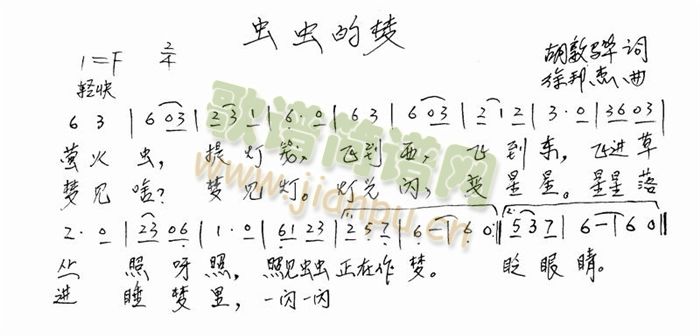 虫虫的梦
1=F 2/4 胡敦骅 词
轻快 徐邦杰 曲
6 3 | 6 03 | 23 1 | 6·0 | 6 3 | 6 03 | 2 1 2 | 3·0 | 36 03 |
萤火虫，提灯笼，飞到西，飞到东，飞进草
梦见啥？梦见灯。灯光闪，变星星。星星落
2·0 | 23 06 | 1·0 | 61 23 | 2 5 7 | 6 — | 6 0 :| 5 3 7 | 6 — | 6 0 ||
丛 照呀照，照见虫虫正在作梦。 眨眼睛。
进 睡梦里，一闪一闪
歌谱简谱网
www.jianpu.cn